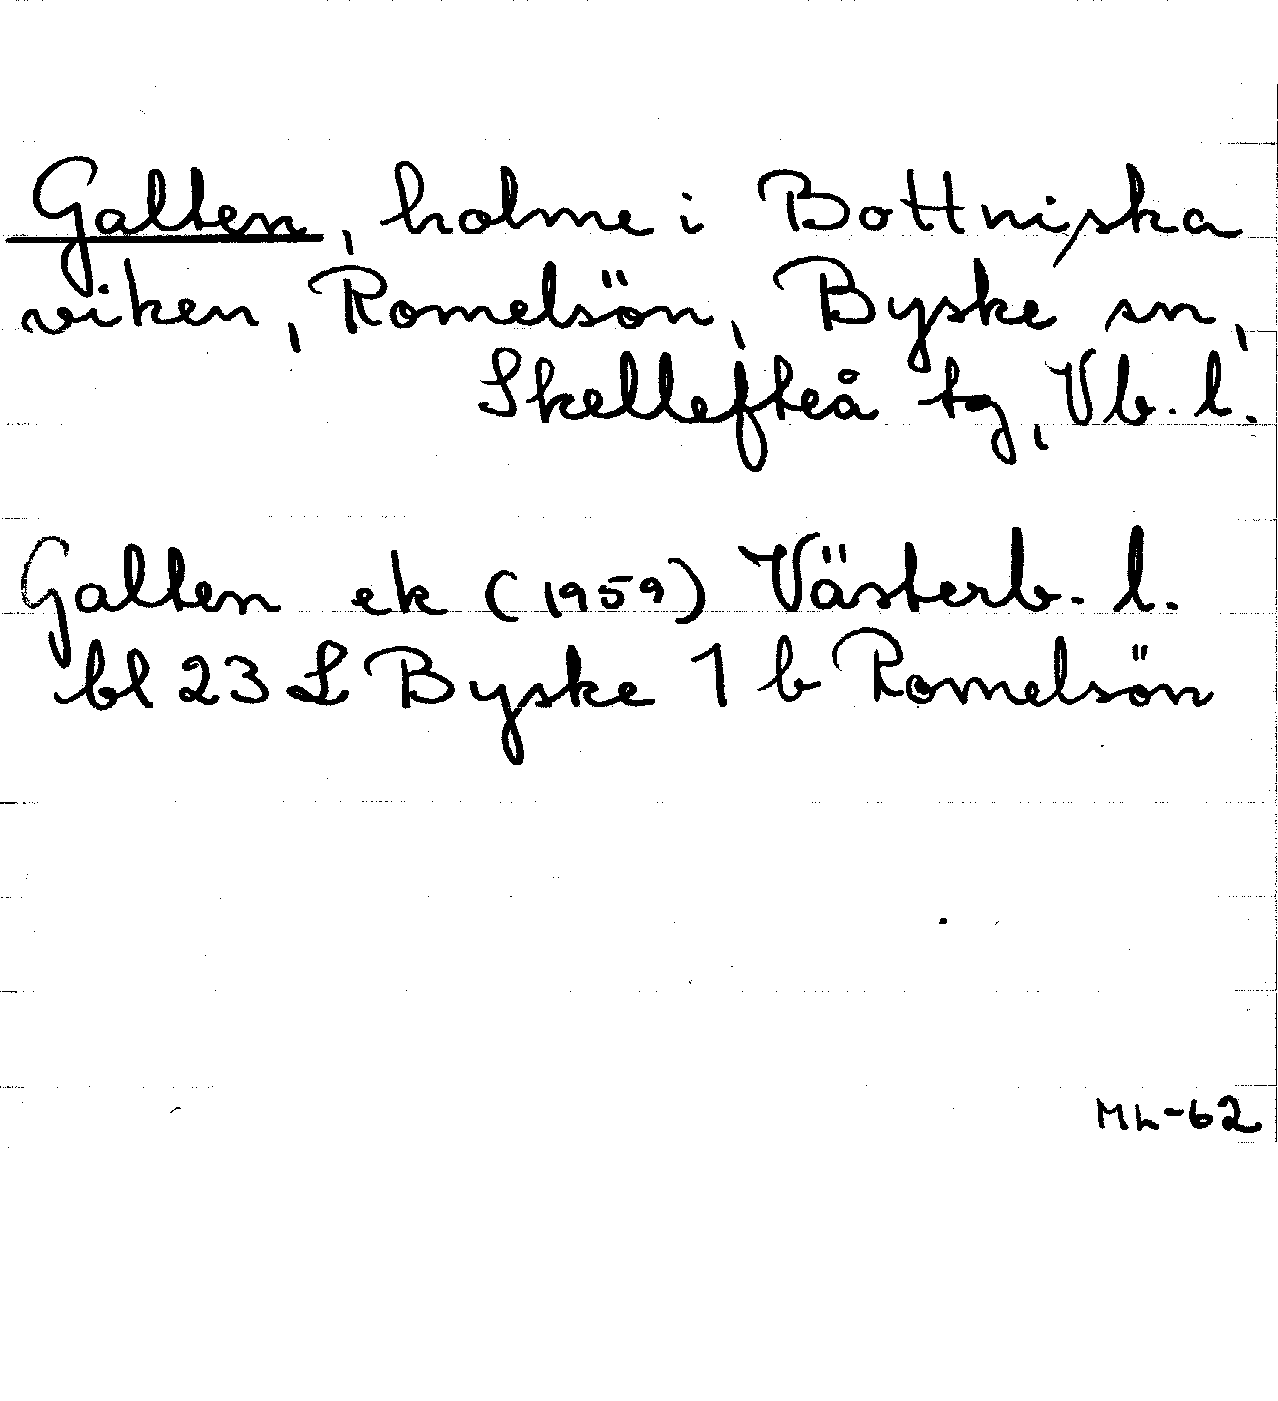 Galten, holme i Bottniska
viken, Romelsön, Byske sn,
Skellefteå tg, Vb. l.
Galten ek (1959) Västerb. l.
bl 23 L Byske 1 b Romelsön
ML-62